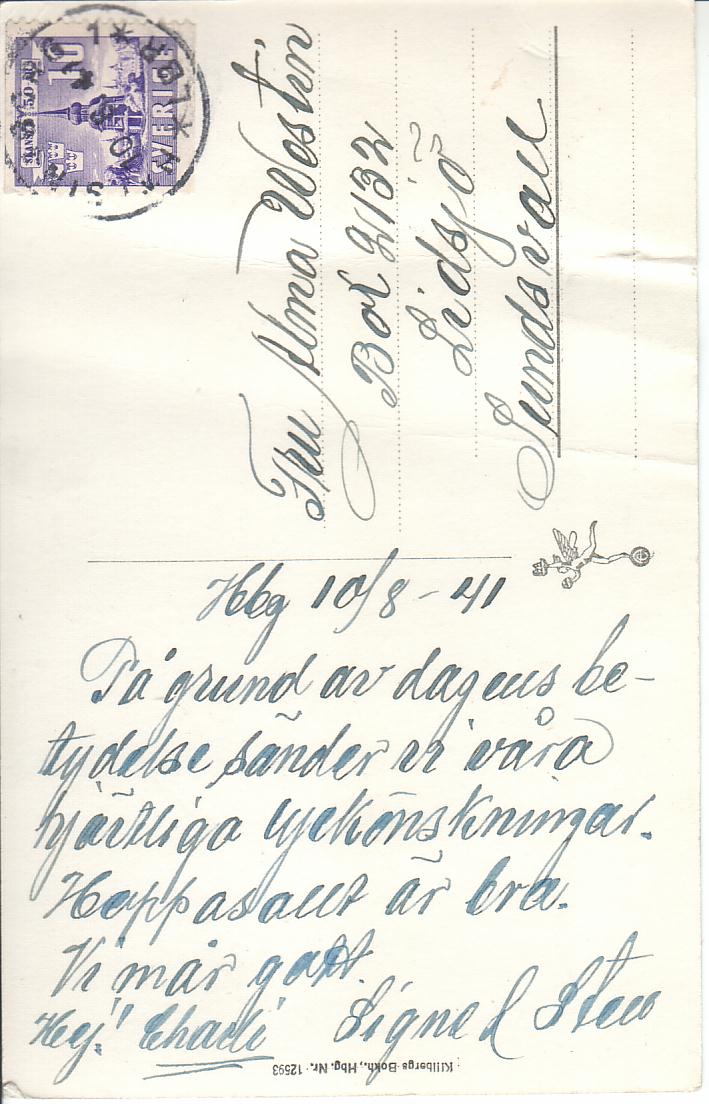 SVERIGE
10
Fru Alma Westin
Box 2132
Lidsjö
Sundsvall
Hbg 10/8 - 41
På grund av dagens be-
tydelse sänder vi våra
hjärtliga lyckönskningar.
Hoppas allt är bra.
Vi mår gott.
Hej! Charli Signe & Sten
Killbergs Bokh., Hbg. Nr. 12593